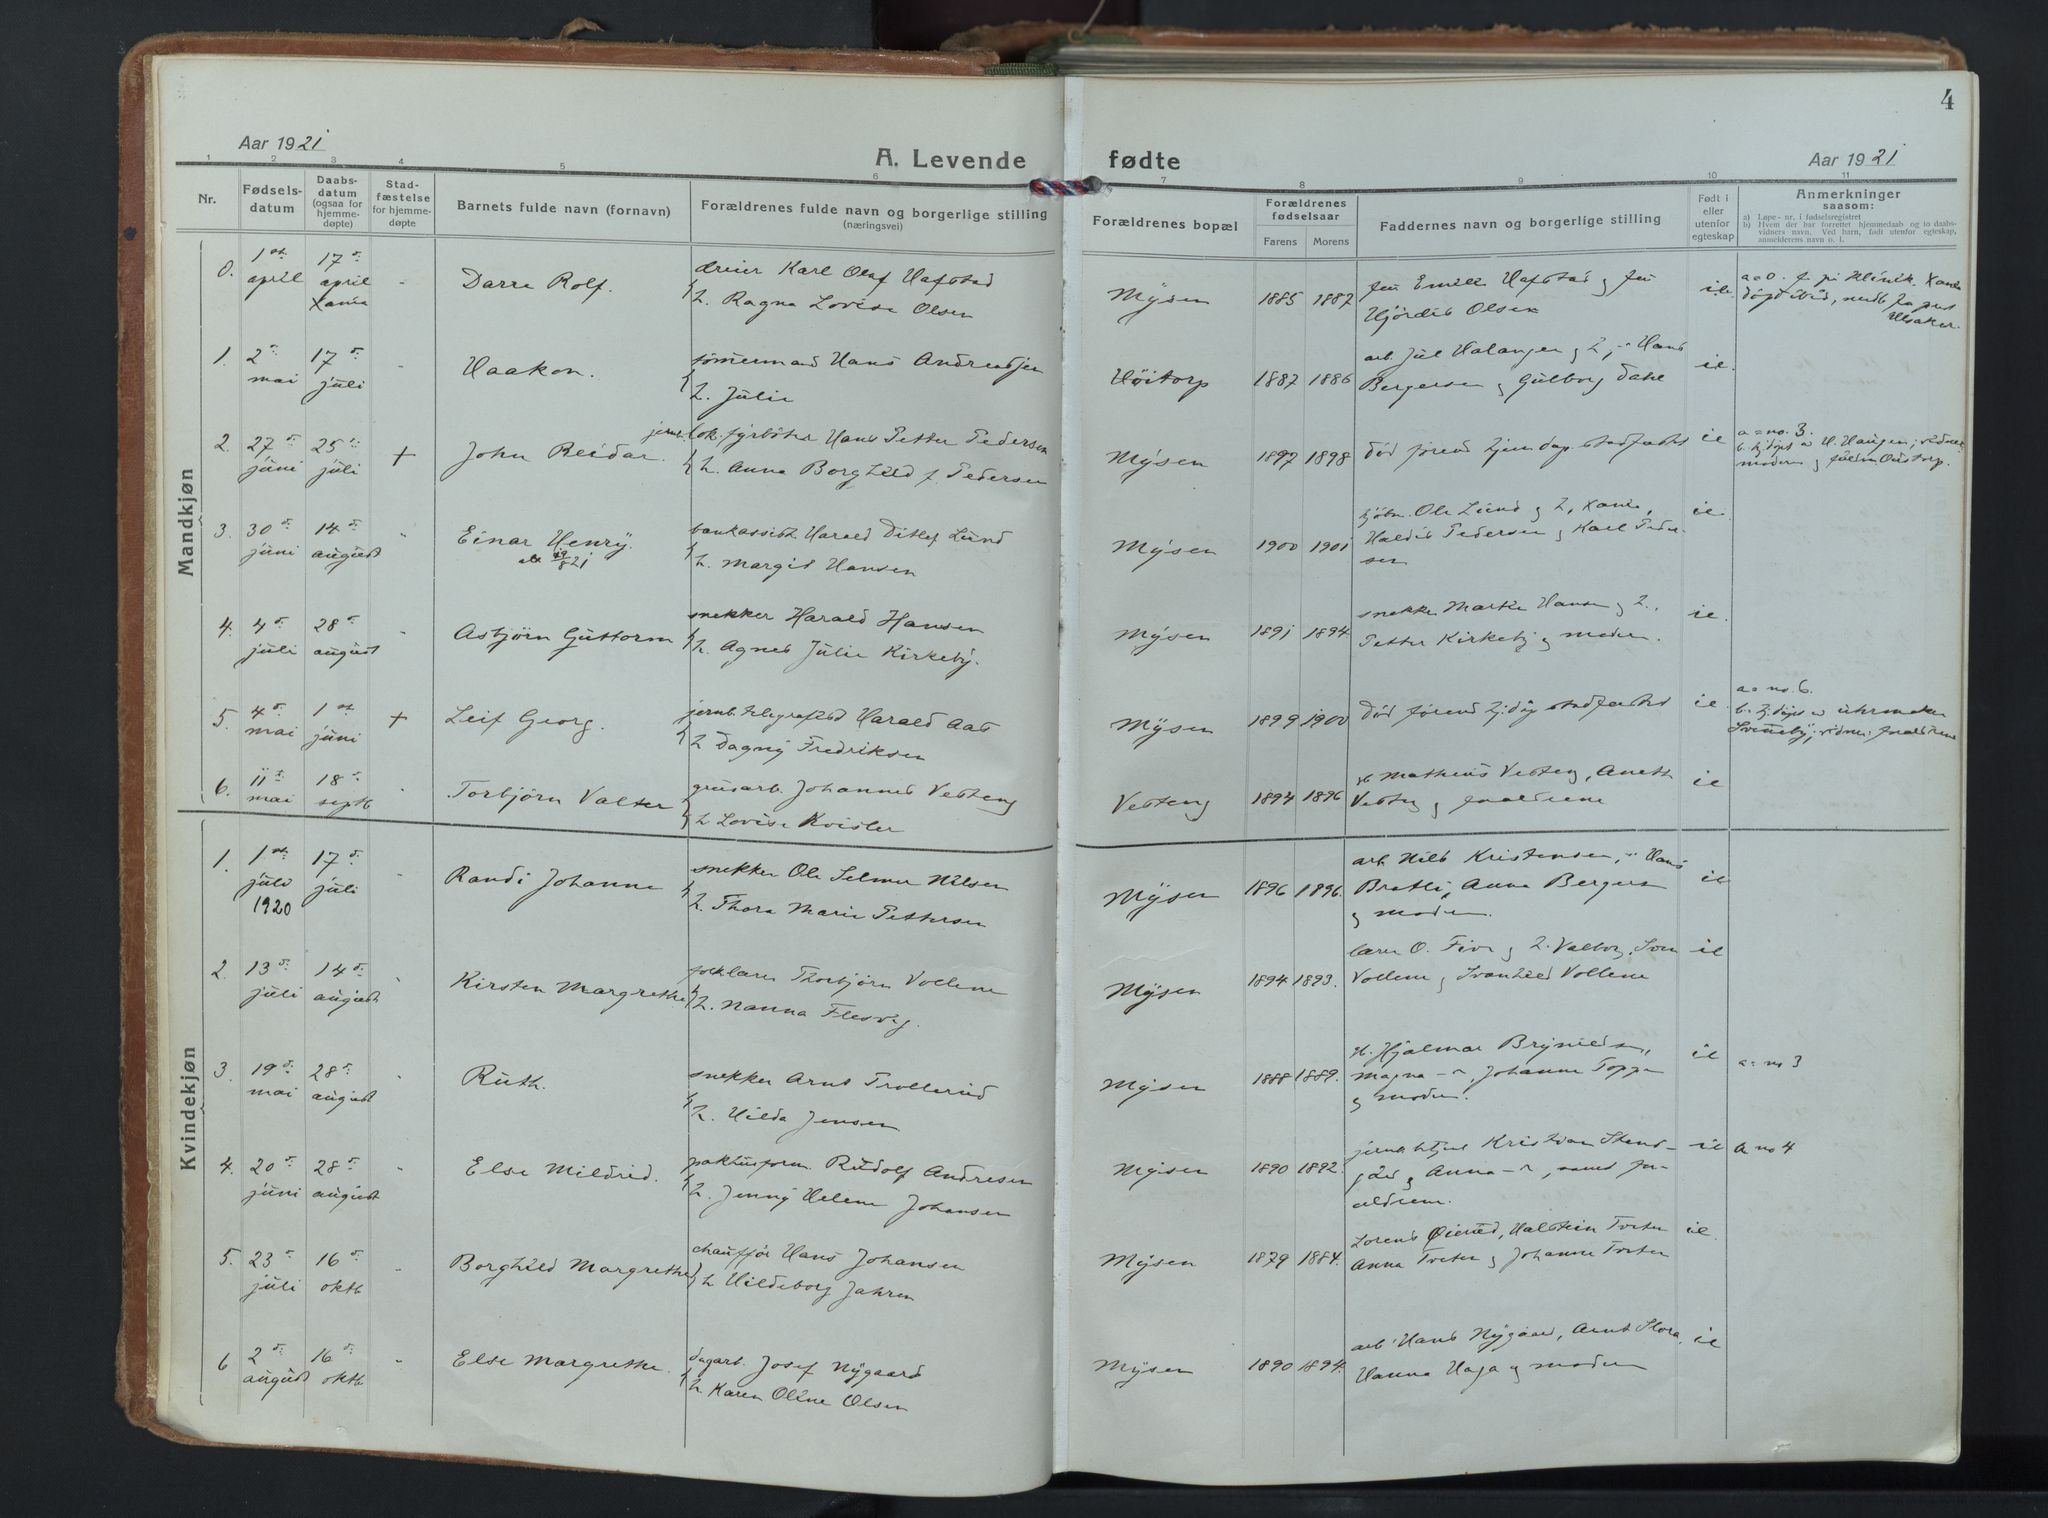 4
Aar 1921
A. Levende fødte
Aar 1921
1 2 3 4 5 6 7 8 9 10 11
Nr.
Fødsels-
datum
Daabs-
datum
(ogsaa for
hjemme-
døpte)
Stad-
fæstelse
for hjemme-
døpte
Barnets fulde navn (fornavn)
Forældrenes fulde navn og borgerlige stilling
(næringsvei)
Forældrenes bopæl
Forældrenes
fødselsaar
Farens Morens
Faddernes navn og borgerlige stilling
Født i
eller
utenfor
egteskap
Anmerkninger
saasom:
a) Løpe-nr. i fødselsregistret
b) Hvem der har forrettet hjemmedaab og to daabs-
vidners navn. Ved barn, født utenfor egteskap,
anmelderens navn o. l.
Mandkjøn
0. 1st april 17d april Xania " Darre Rolf.
dreier Karl Olaf Hafstad
h. Ragna Lovise Olsen
Mysen 1885 1887
fru Emilie Hafstad og fru
Hjördis Olsen
ie.
a=0. f. på klinik Xania
1. 2d mai 17d juli " Haakon.
tømermand Hans Andreassen
h. Julie
Höitorp 1887 1886
arb. Jul Halangen og h, " Hans
Bergersen og Gulborg Dahl
ie.
2. 27d juni 25d juli + John Reidar.
jernb. lok. fyrböter Hans Petter Pedersen
h. Anna Borghild f. Pedersen
Mysen 1897 1898
död førend hjemdap stadfestet
ie
a=no. 3.
b. hjdöpt av H. Haugen; vidner
moderen og
3. 30d juni 14d august " Einar Henry.
19/8 21
bankassist. Harald Ditlef Lund
h. Margit Hansen
Mysen 1900 1901
Ole Lund og h, Xania,
Haldis Pedersen og Karl Peder-
sen
ie
4. 4d juli 28d august " Asbjörn Guttorm
snekker Harald Hansen
h. Agnes Julie Kirkeby.
Mysen 1891 1894
snekke Hansen og h.,
Petter Kirkeby og moder.
ie.
5. 4d mai 1st juni + Leif Georg.
jernb. telegrafist Harald Aas
h Dagny Fredriksen
Mysen 1899 1900
död førend hjdåp stadfestet
ie.
a= no. 6.
b. hjdöpt av uhrmaker
Svenneby; vidner: forældrene
6. 11t mai 18d septb " Torbjörn Valter
grusarb. Johannes Vesteng
h Lovise Kvisler
Vesteng 1894 1896
Matheus Vesteng, Anette
Vesteng og forældrene
ie
Kvindekjøn
1. 1st juli 1920 17d juli " Randi Johanne
snekker Ole Selmer Nilsen
h. Thora Marie Pettersen
Mysen 1896 1896.
arb. Nils Kristensen, " Hans
Bratli, Anna Bergersen
og moder.
ie
2. 13d juli 14d august " Kirsten Margrethe
folklærer Thorbjörn Vollene
h. Nanna Flesvig.
Mysen 1894 1893.
lærer O. Five og h. Valborg, Sven
Vollene og Svanhild Vollene
ie
3. 19d mai 28d august " Ruth.
snekker Arnt Trollerud
h. Hilda Jensen
Mysen 1888 1889.
Hjalmar Brynildsen,
Magna —", Johanne Toppe
og moder.
ie
a= no 3
4. 20d juni 28d august " Else Mildrid.
pakhusform. Rudolf Andresen
h. Jenny Helene Johansen
Mysen 1890 1892.
jernb. betjent Kristian Stens-
gård og Anna —", samt for-
ældrene.
ie
a no 4
5. 23d juli 16d oktb " Borghild Margrethe
chaufför Hans Johansen
h Hildeborg Jahren
Mysen 1879 1884.
Lorens Øierud, Halstein Tveter
Anna Tveter og Johanne Tveter
ie.
6 2d august 16d oktb " Else Margrethe.
dagarb. Josef Nygaard
h Karen Oline Olsen
Mysen 1890 1894.
arb Hans Nygaard, Arnt Skora,
Hanna Haga og moder
ie